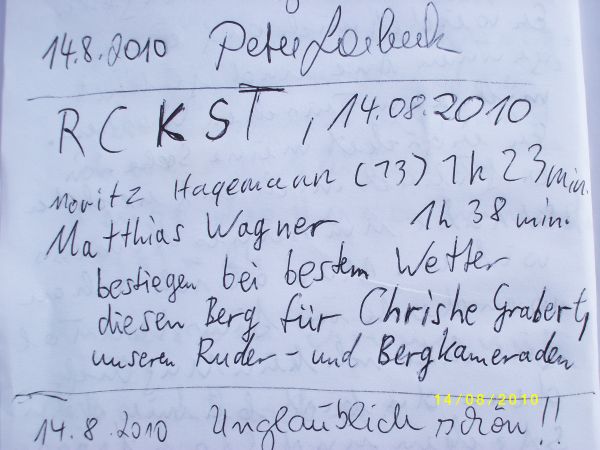 14.8.2010 Peter
RCKST, 14.08.2010
Moritz Hagemann (13) 1h 23min.
Matthias Wagner 1h 38 min.
bestiegen bei bestem Wetter
diesen Berg für Christhe Grabert,
unseren Ruder- und Bergkameraden
14/08/2010
14.8.2010 Unglaublich schön!!